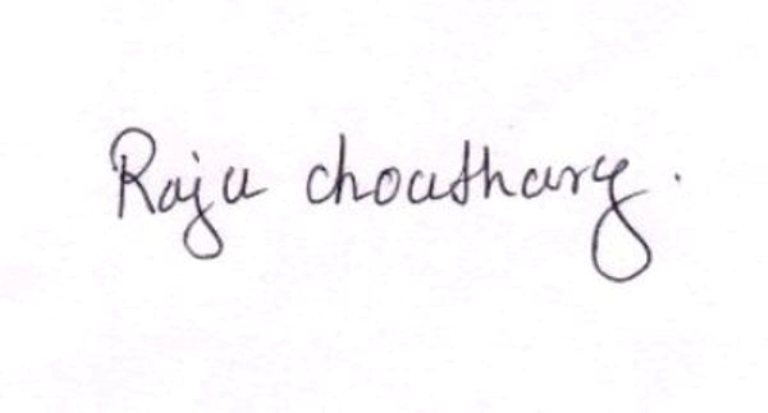 Raju choathary.